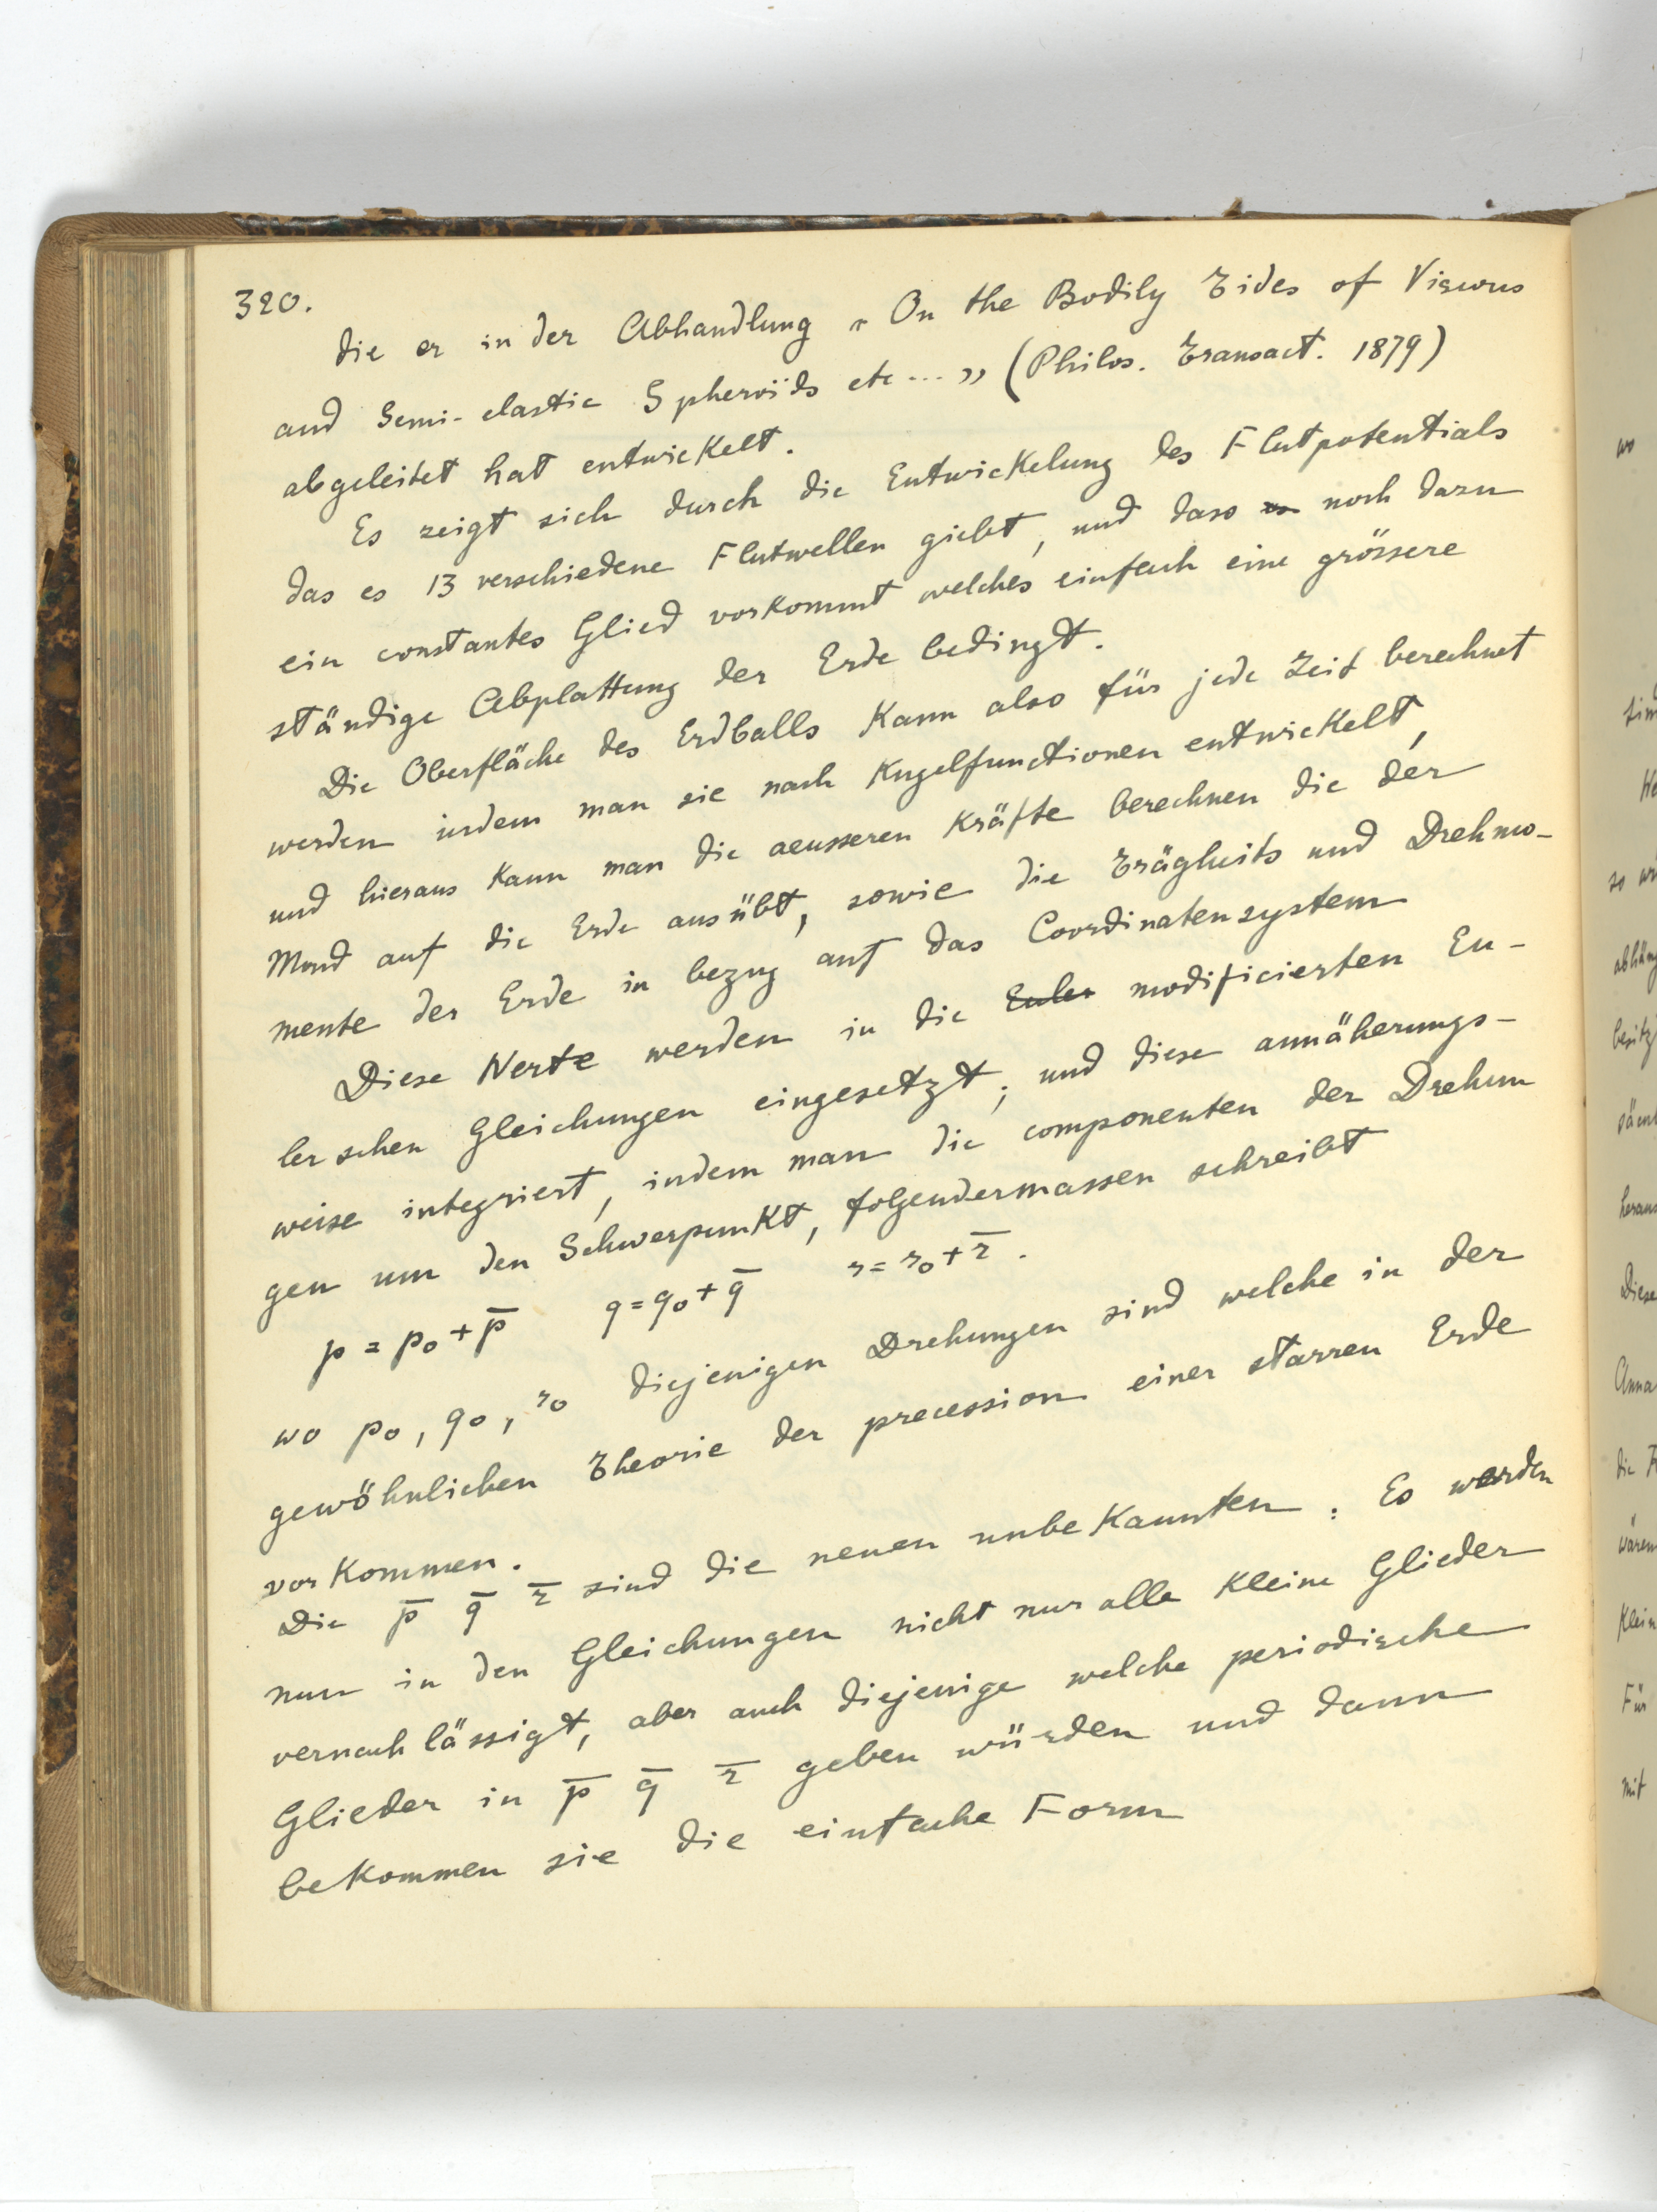 320.
die er in der Abhandlung „ On the Bodily Tides of Viscous
and Semi-elastic Spheroïds etc ... ” (Philos. Transact. 1879)
abgeleitet hat entwickelt.
Es zeigt sich durch die Entwickelung des Flutpotentials
das es 13 verschiedene Flutwellen giebt, und dass es noch dazu
ein constantes Glied vorkommt welches einfach eine grössere
ständige Abplattung der Erde bedingt.
Die Oberfläche des Erdballs kann also für jede Zeit berechnet
werden indem man sie nach Kugelfunctionen entwickelt,
und hieraus kann man die aeusseren Kräfte berechnen die der
Mond auf die Erde ausübt, sowie die Trägheits und Drehmo-
mente der Erde in bezug auf das Coordinatensystem
Diese Werte werden in die Euler modificierten Eu-
lerschen Gleichungen eingesetzt, und diese annäherungs-
weise integriert, indem man die componenten der Drehun
gen um den Schwerpunkt, folgendermassen schreibt
p = p₀ + p̅ q = q₀ + q̅ r = r₀ + r̅ .
wo p₀, q₀, r₀ diejenigen Drehungen sind welche in der
gewöhnlichen Theorie der precession einer starren Erde
vorkommen.
Die p̅ q̅ r̅ sind die neuen unbekannten. Es werden
nun in den Gleichungen nicht nur alle kleine Glieder
vernachlässigt, aber auch diejenige welche periodische
Glieder in p̅ q̅ r̅ geben würden und dann
bekommen sie die einfache Form
wo
so
Diese
die
Für
mit